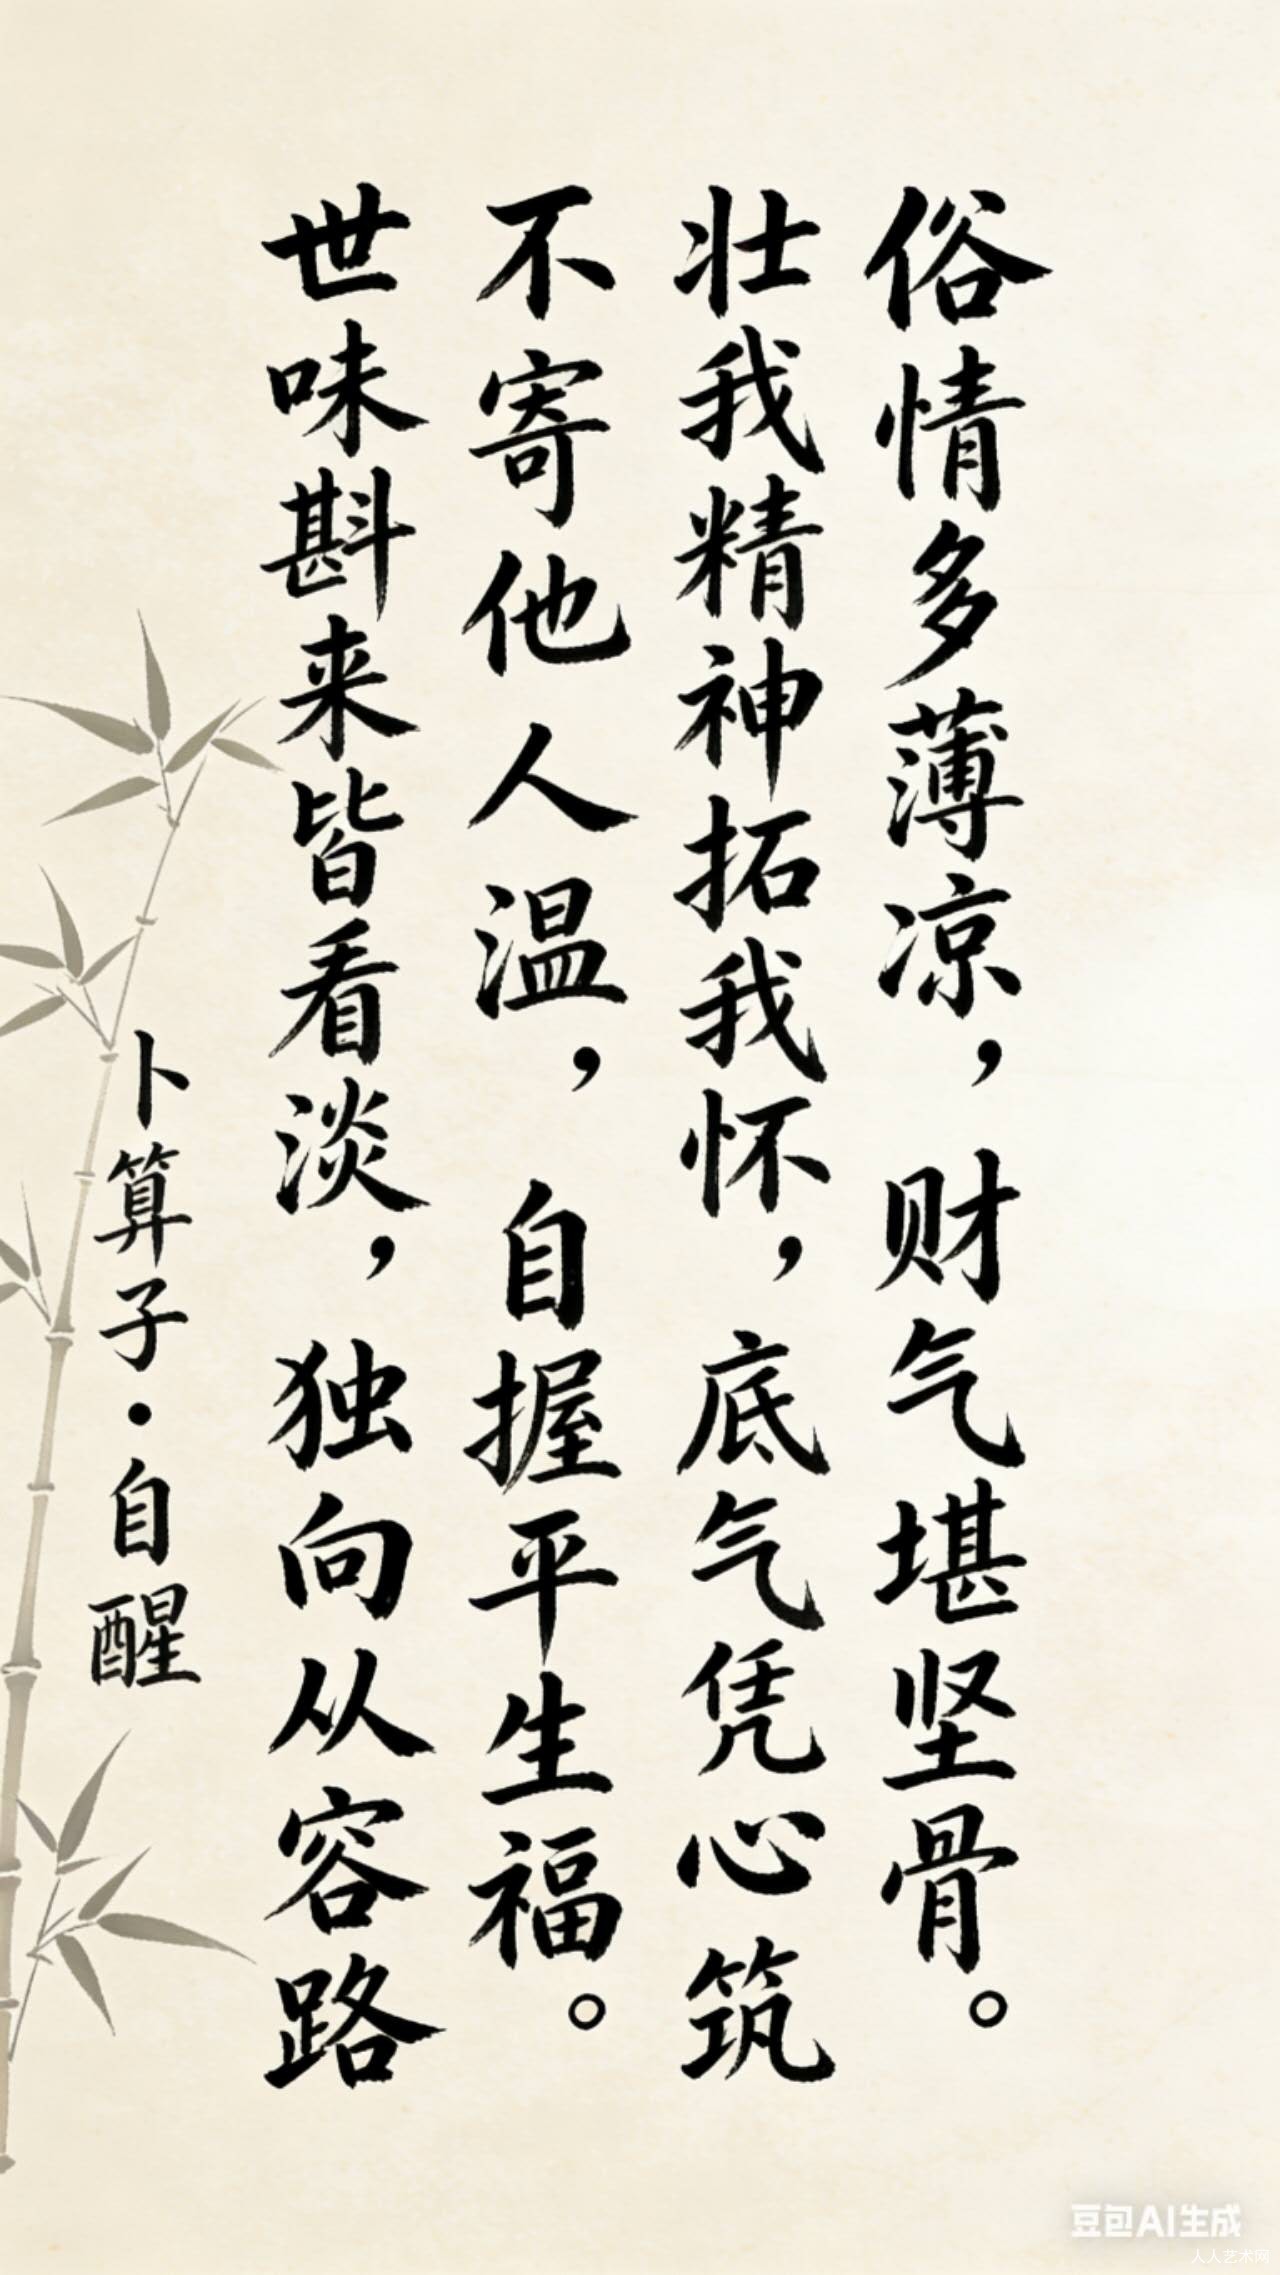 俗情多薄凉，财气堪坚骨。
壮我精神拓我怀，底气凭心筑
不寄他人温，自握平生福。
世味斟来皆看淡，独向从容路
卜算子·自醒
豆包AI生成
人人艺术网